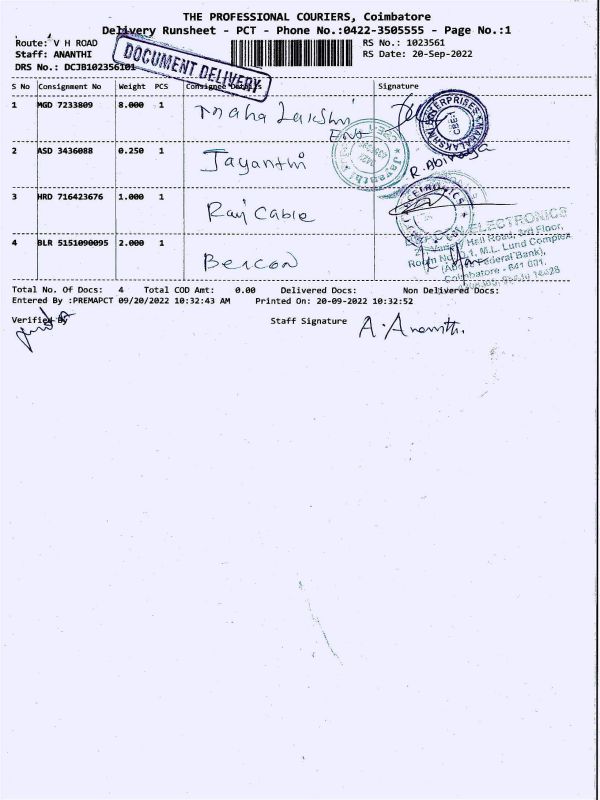 THE PROFESSIONAL COURIERS, Coimbatore
Delivery Runsheet - PCT - Phone No.:0422-3505555 - Page No.:1
Route: V H ROAD
RS No.: 1023561
Staff: ANANTHI
RS Date: 20-Sep-2022
DRS No.: DCJB102356101
DOCUMENT DELIVERY
S No Consignment No Weight PCS Consignee Details Signature
1 MGD 7233809 8.000 1 Maha Lakshmi
Ent
ENTERPRISES MAHALAKSHMI
CBE
2 ASD 3436088 0.250 1 Jayanthi R. Abinaya
Jayanthi
3 HRD 716423676 1.000 1 Raj Cable
ELECTRONICS
Hall Road, 3rd Floor,
M.L. Lund Complex
Federal Bank),
Coimbatore - 641 001.
4 BLR 5151090095 2.000 1 Beacon
Total No. Of Docs: 4 Total COD Amt: 0.00 Delivered Docs: Non Delivered Docs:
Entered By :PREMAPCT 09/20/2022 10:32:43 AM Printed On: 20-09-2022 10:32:52
Verified By Staff Signature A. Ananthi.